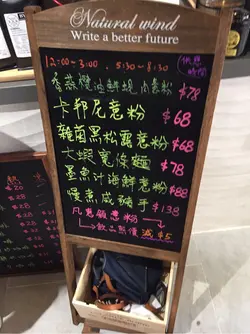 Natural wind
Write a better future
12:00-3:00 5:30-8:30
優惠時間
香蒜欖油鮮蜆肉意粉 $78
卡邦尼意粉 $68
雜菌黑松露意粉 $68
大蝦寬條麵 $78
墨魚汁海鮮意粉 $88
慢煮咸豬手 $138
凡惠顧意粉
飲品熱價 減 $5
$20
$28
$28
$28